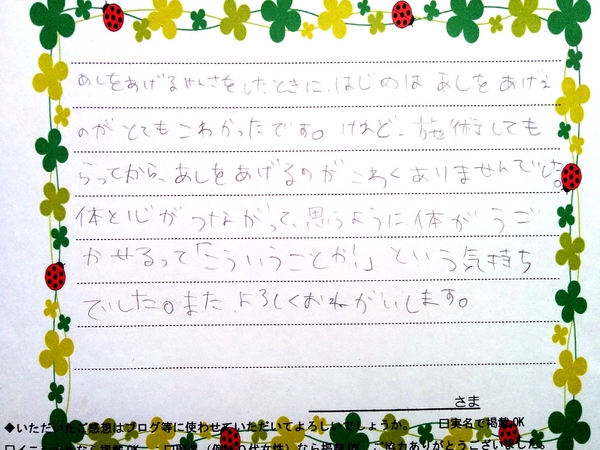 あしをあげるけんさをしたときに、はじめは あしを あげる
のが とても こわかったです。けれど、施術しても
らってから、あしをあげるのが こわく ありませんでした。
体と心が つながって、思うように体が うご
かせるって「こういうことか!」という気持ち
でした。また よろしくおねがいします。
さま
◆いただいたご感想はブログ等に使わせていただいてよろしいでしょうか。 □実名で掲載OK
なら掲載OK ご協力ありがとうございました。